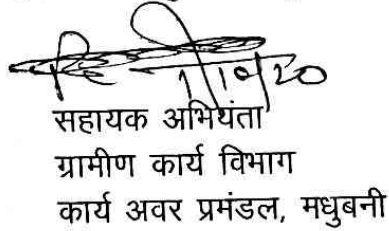 सहायक अभियंता
ग्रामीण कार्य विभाग
कार्य अवर प्रमंडल, मधुबनी